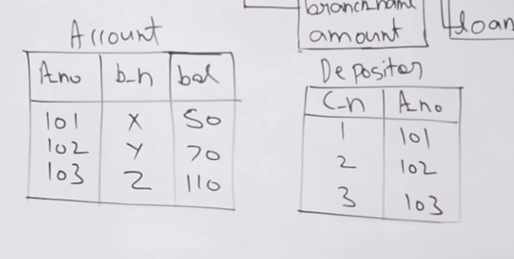 branch name
amount
loan
Account
Ano b-n bal
101 X 50
102 Y 70
103 Z 110
Depositor
C-n Ano
1 101
2 102
3 103